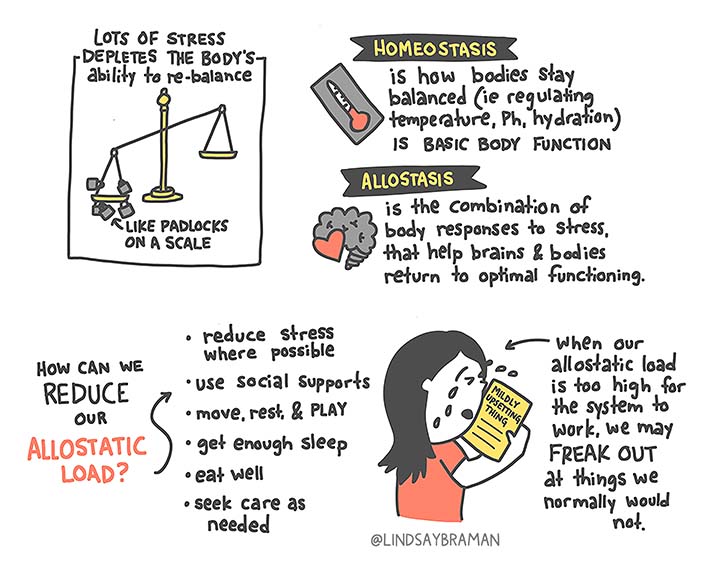 LOTS OF STRESS
DEPLETES THE BODY'S
ability to re-balance
LIKE PADLOCKS
ON A SCALE
HOMEOSTASIS
is how bodies stay
balanced (ie regulating
temperature, Ph, hydration)
IS BASIC BODY FUNCTION
ALLOSTASIS
is the combination of
body responses to stress,
that help brains & bodies
return to optimal functioning.
HOW CAN WE
REDUCE
OUR
ALLOSTATIC
LOAD?
• reduce stress
where possible
• use social supports
• move, rest, & PLAY
• get enough sleep
• eat well
• seek care as
needed
MILDLY
UPSETTING
THING
when our
allostatic load
is too high for
the system to
work, we may
FREAK OUT
at things we
normally would
not.
@LINDSAYBRAMAN